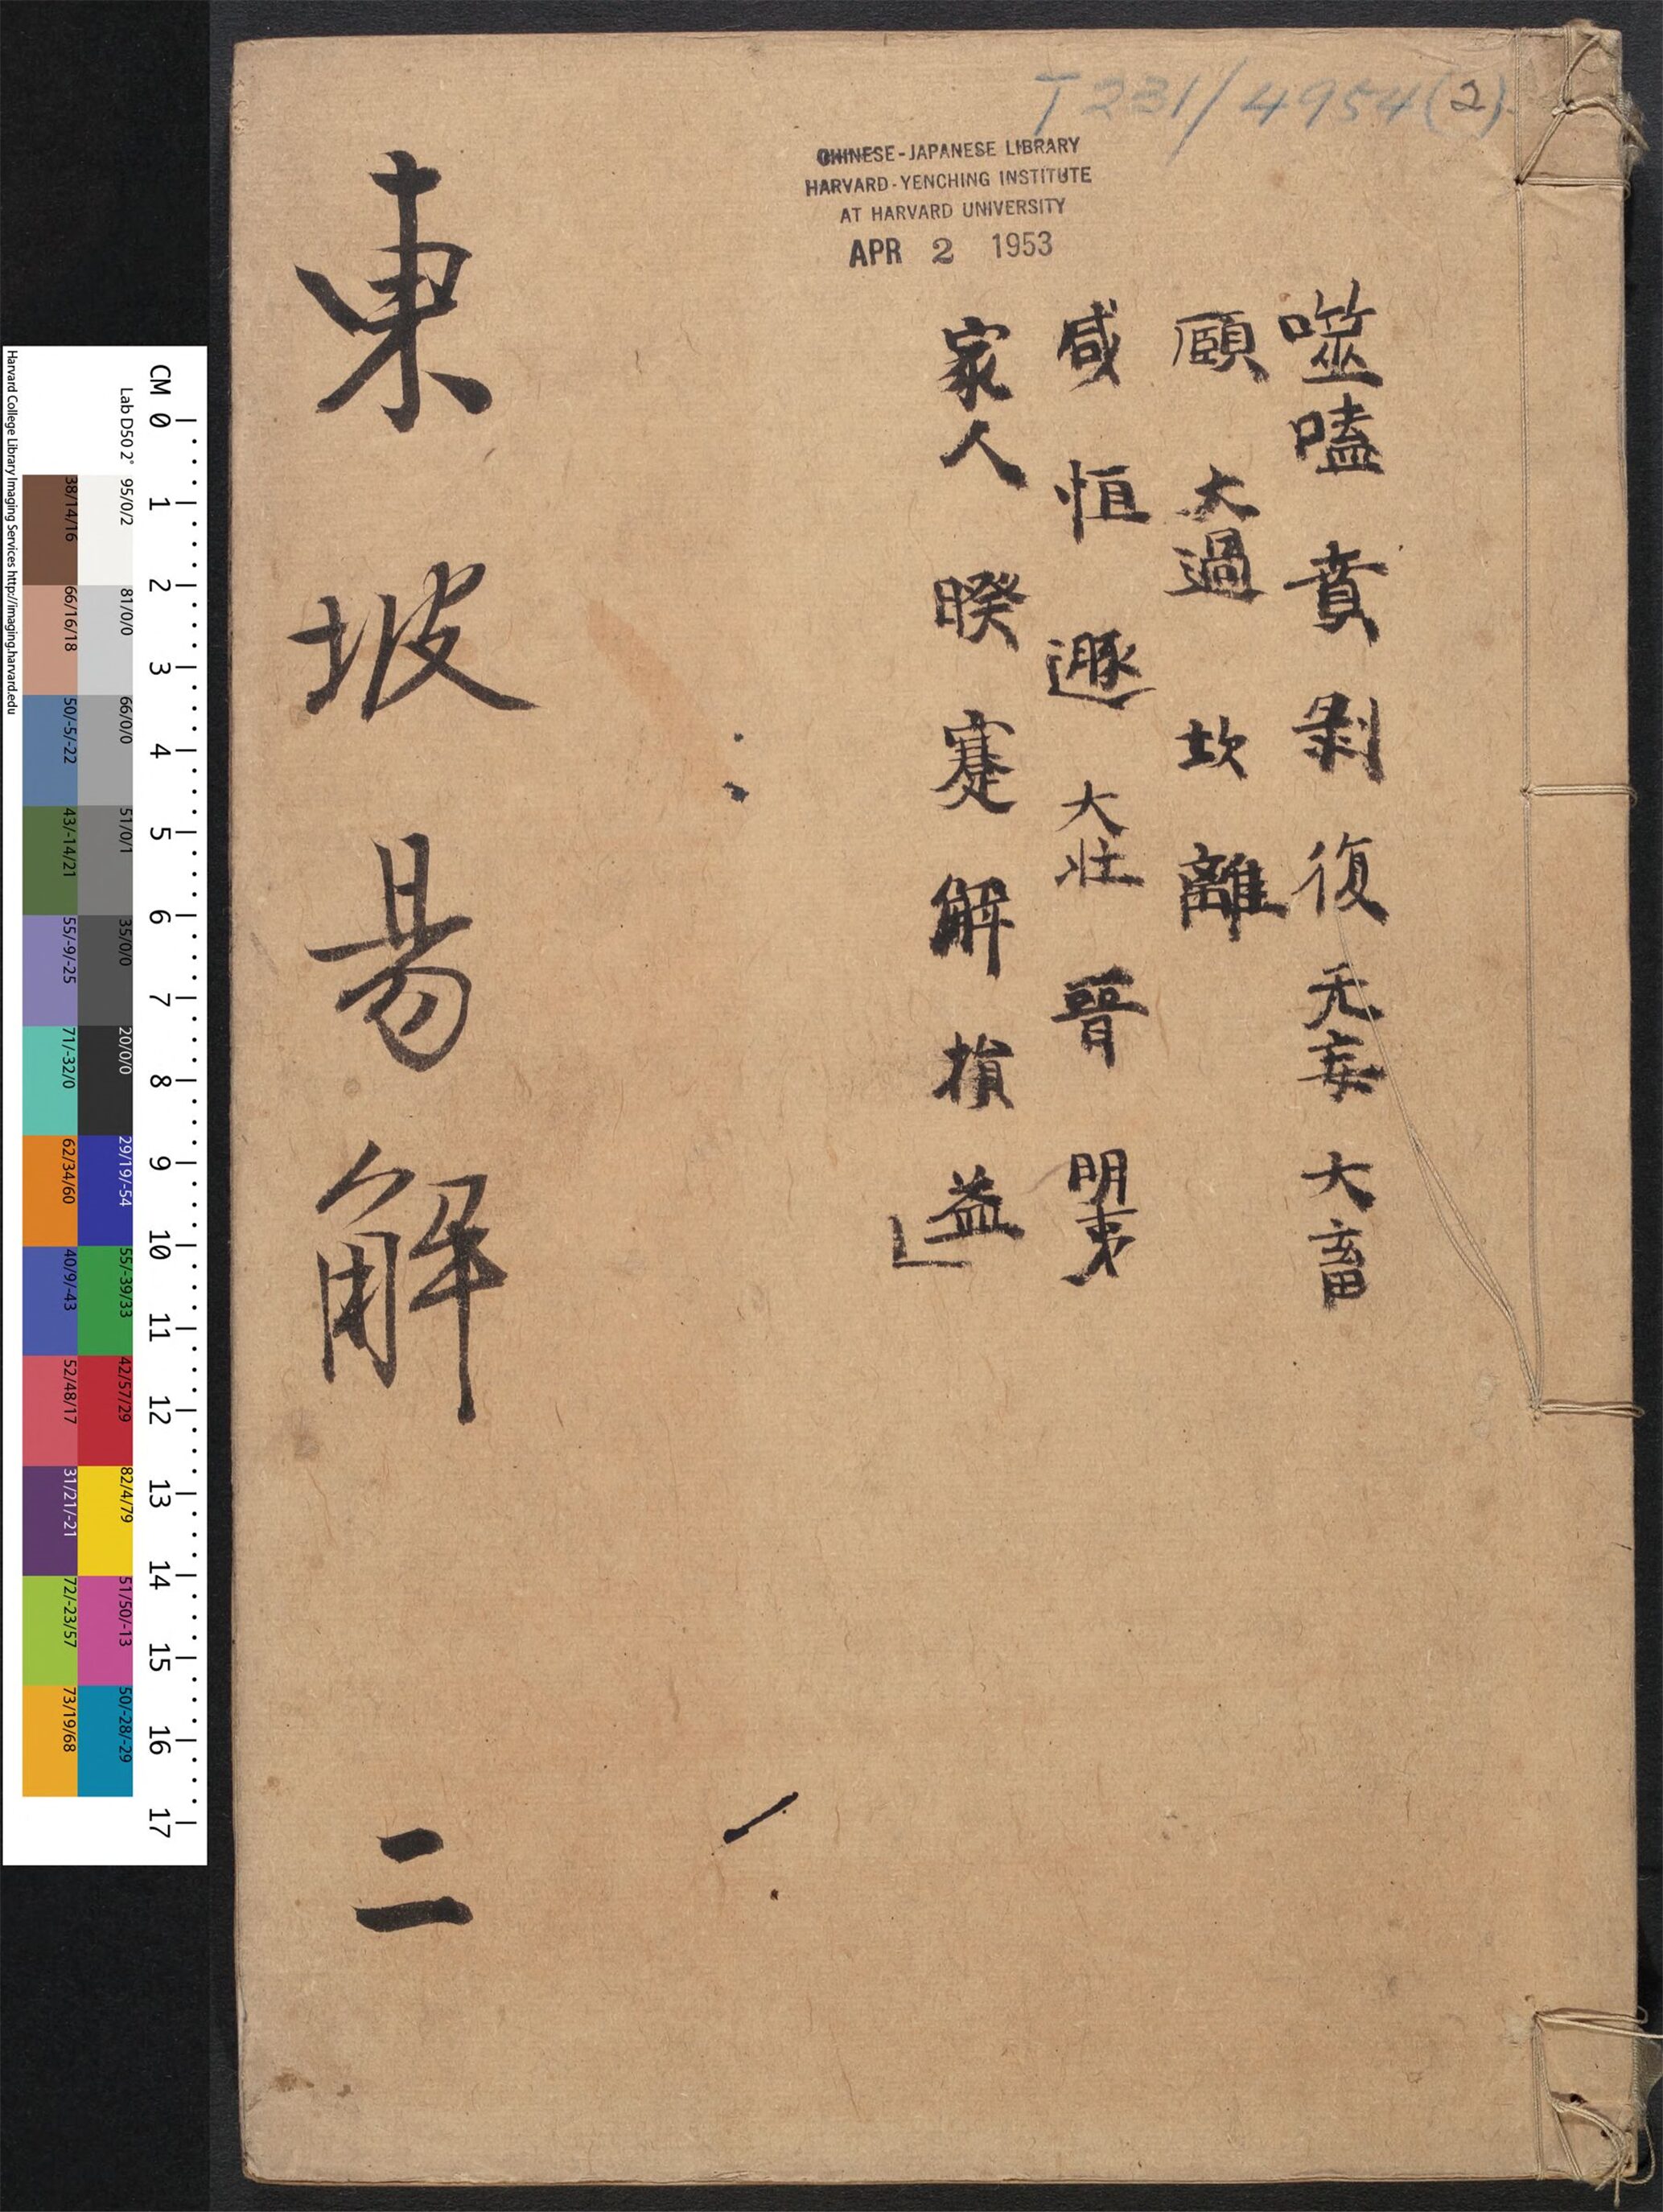 T 231/4954(2)
CHINESE-JAPANESE LIBRARY
HARVARD-YENCHING INSTITUTE
AT HARVARD UNIVERSITY
APR 2 1953
噬嗑 賁 剝 復 无妄 大畜
頤 大過 坎 離
咸 恒 遯 大壯 晉 明夷
家人 睽 蹇 解 損 益
東坡易解 二
CM 0 1 2 3 4 5 6 7 8 9 10 11 12 13 14 15 16 17
Lab D50 2°
95/0/2 81/0/0 66/0/0 51/0/1 35/0/0 20/0/0 29/19/-54 55/-39/33 42/57/29 82/4/79 51/50/-13 50/-28/-29
38/14/16 66/16/18 50/-5/-22 43/-14/21 55/-9/-25 71/-32/0 62/34/60 40/9/-43 52/48/17 31/21/-21 72/-23/57 73/19/68
Harvard College Library Imaging Services http://imaging.harvard.edu